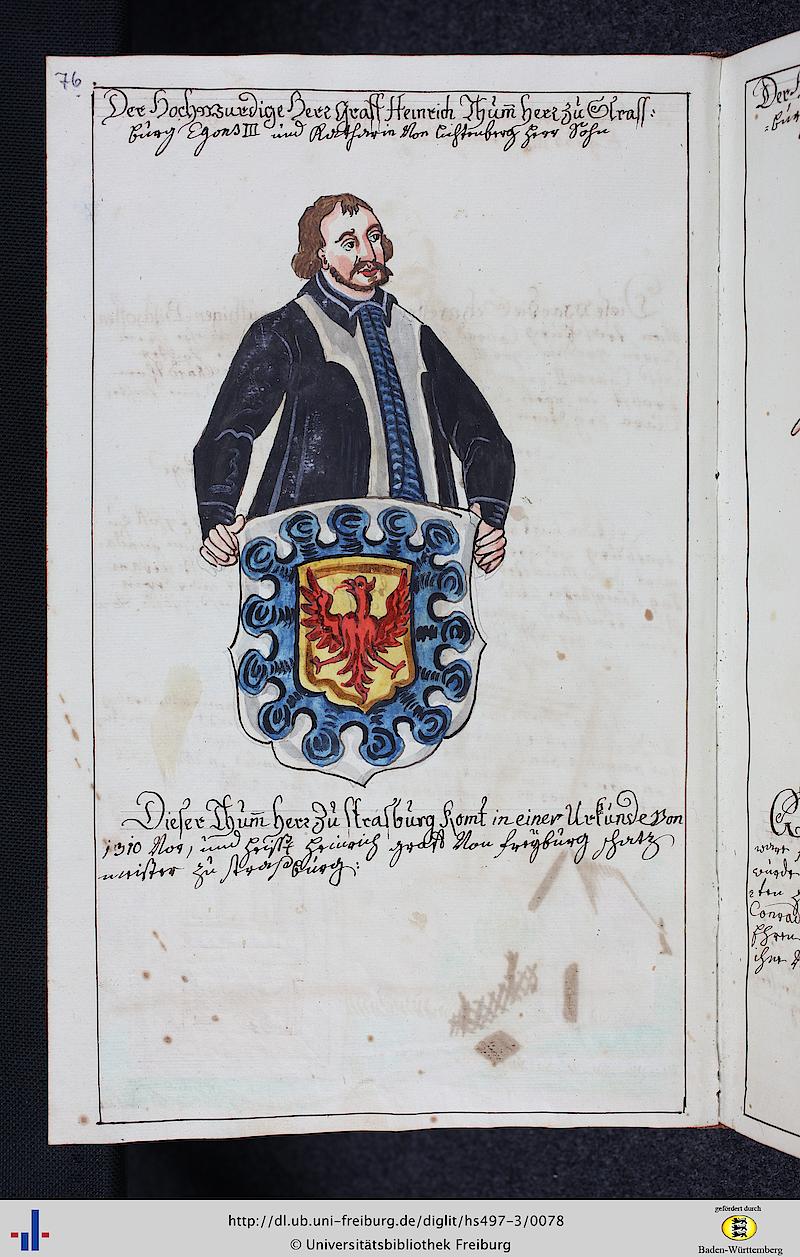 76
Der Hochwurdige Herr Graff Heinrich Thum̄ herr zů Strass:
bůrg Egons III und Katharin Von Lichtenberg Herr Sohn
Dieser Thum̄ herr zů strasbůrg komt in einer Urkůnde von
1310 Vor, und heisst Heinrich graff Von freÿbůrg schatz
meister zů strasbůrg:
Der H
:bůr
G
ware
wurde
Conrad
ihren
http://dl.ub.uni-freiburg.de/diglit/hs497-3/0078
© Universitätsbibliothek Freiburg
gefördert durch
Baden-Württemberg